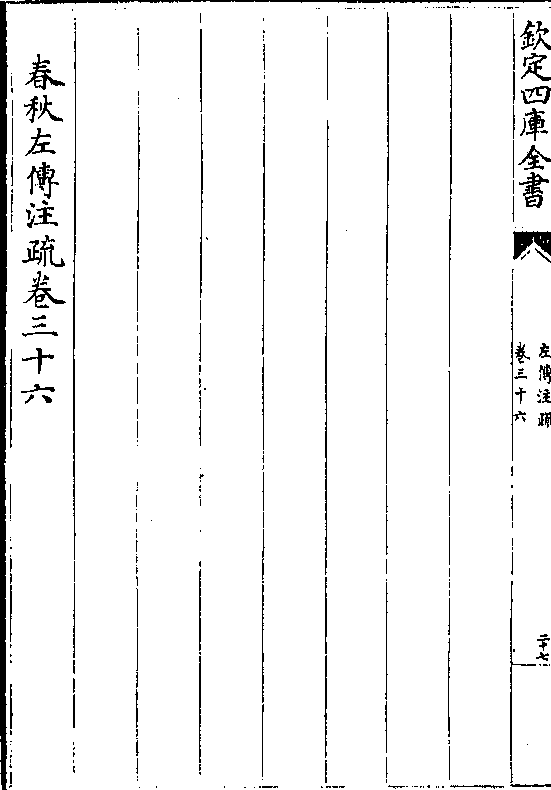 欽定四庫全書
左傳注疏
卷三十六
二十七
春秋左傳注疏卷三十六